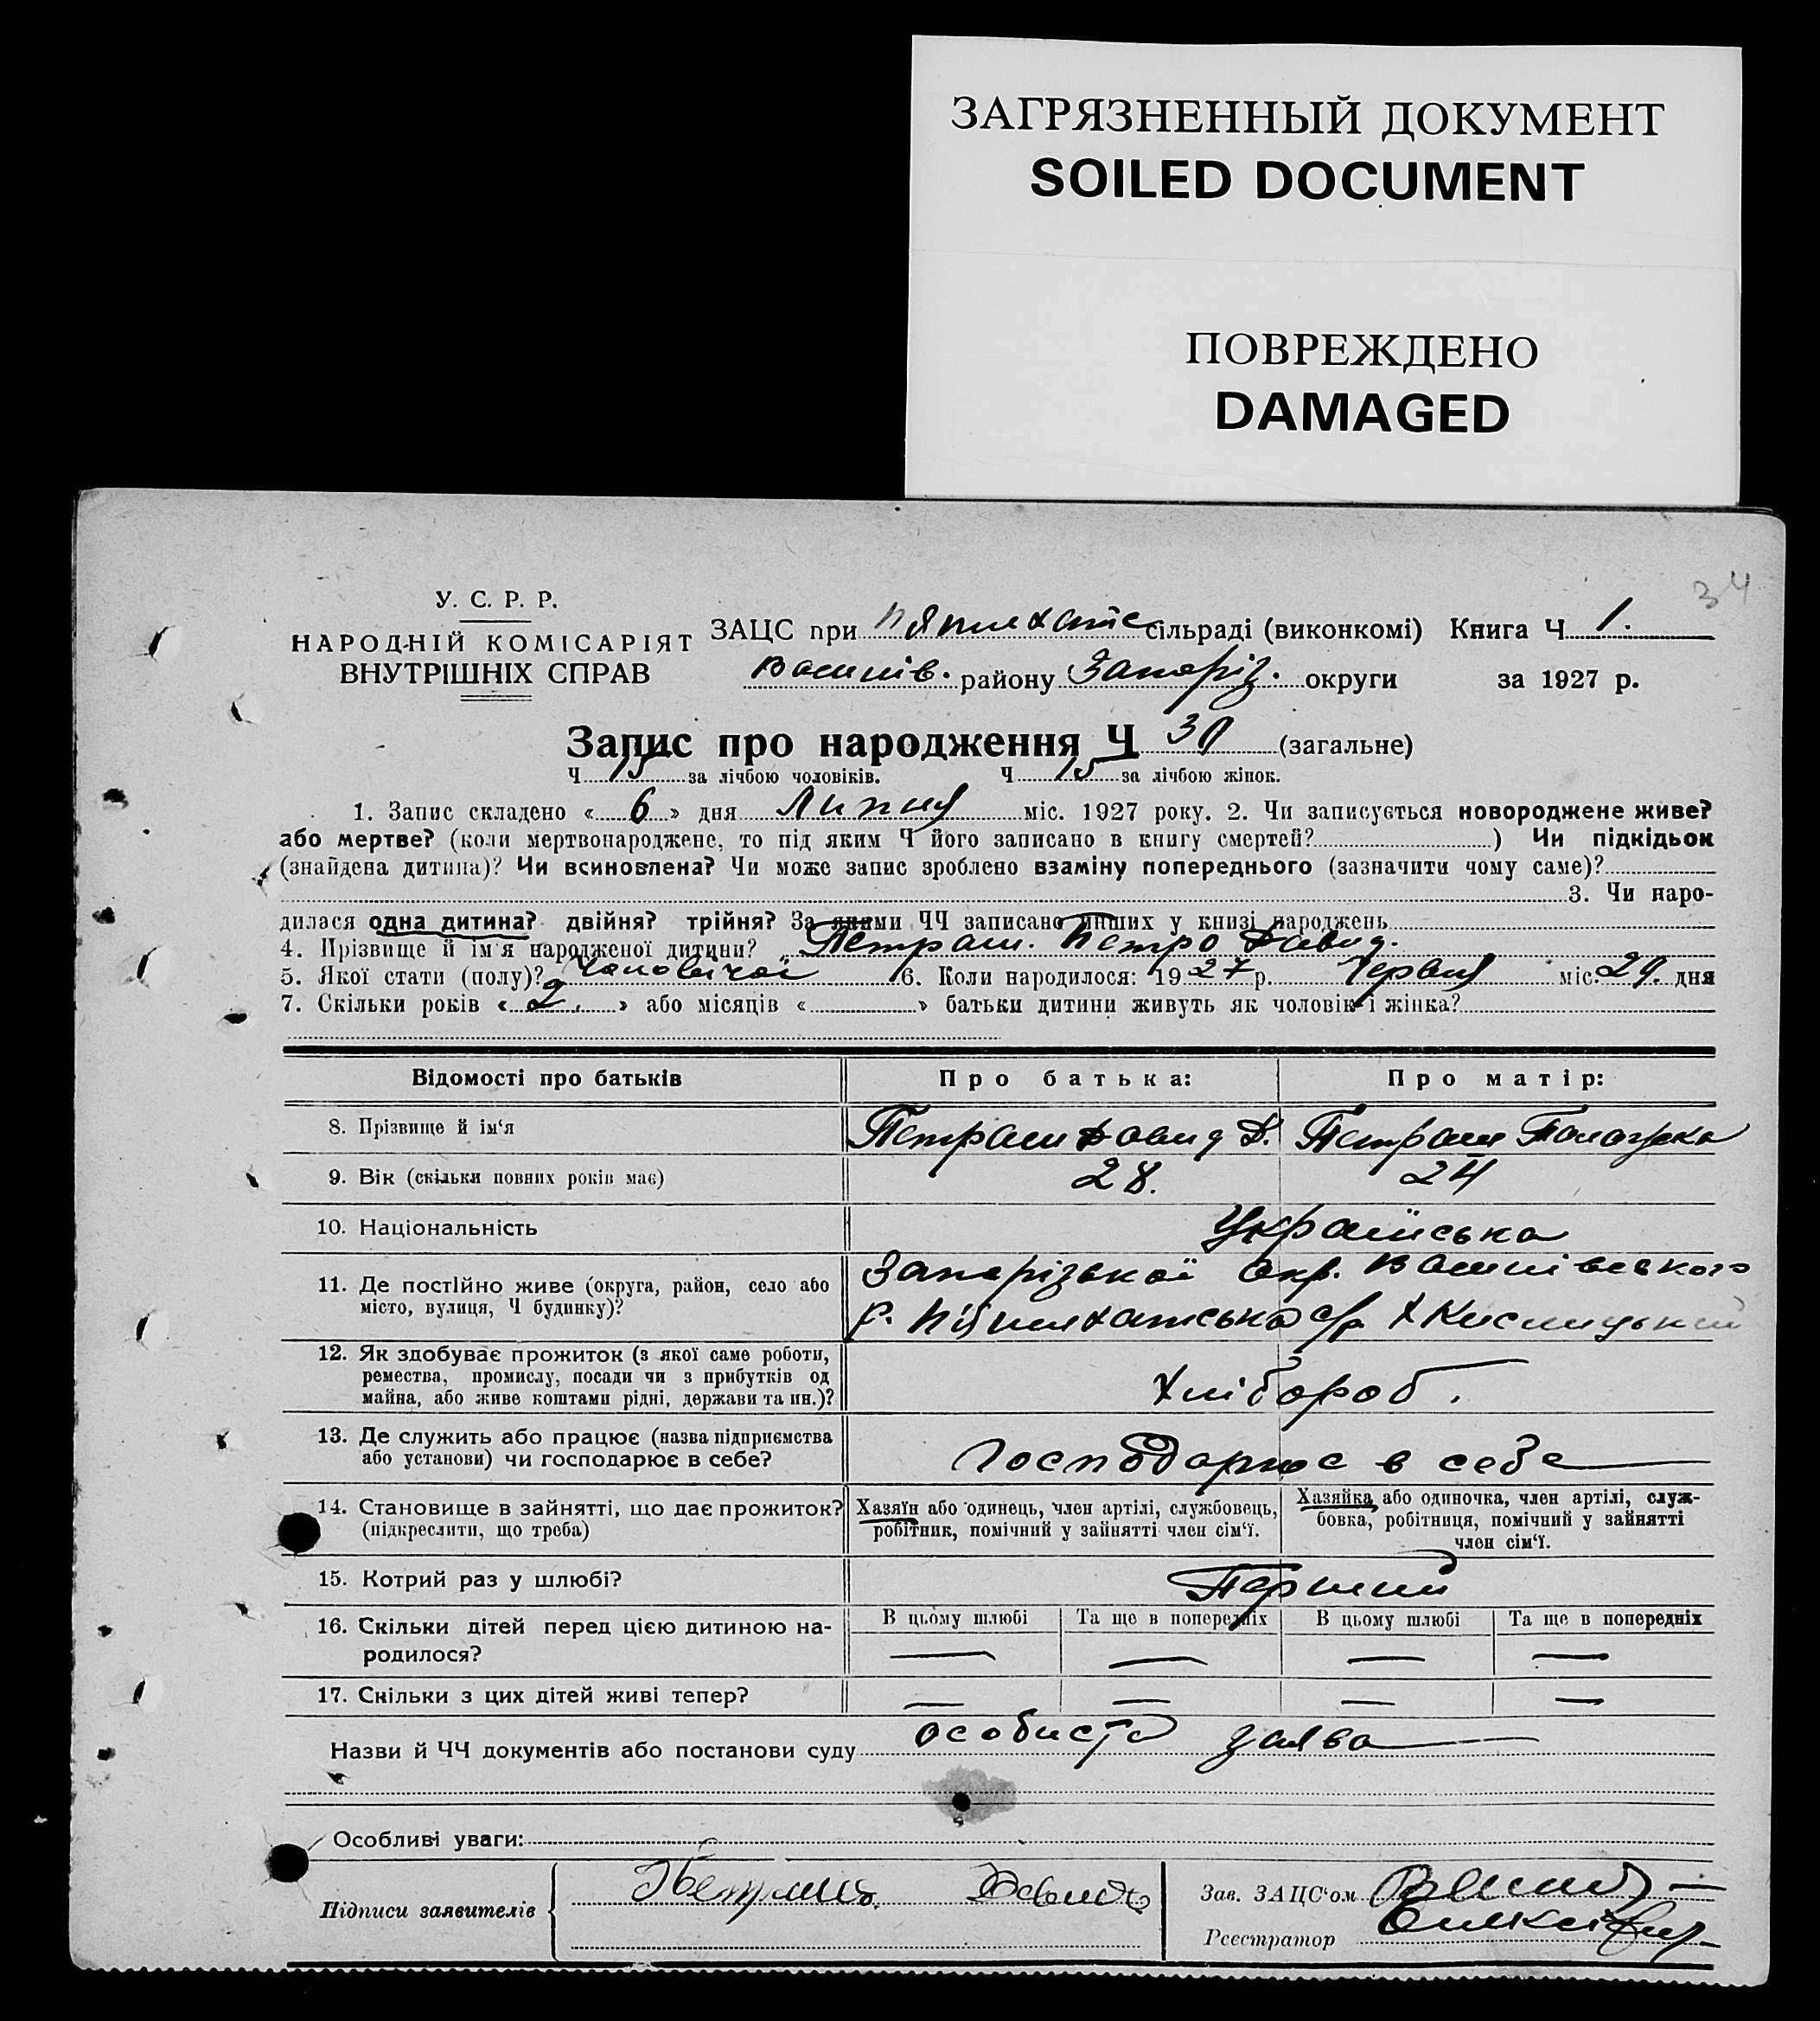 ЗАГРЯЗНЕННЫЙ ДОКУМЕНТ
SOILED DOCUMENT
ПОВРЕЖДЕНО
DAMAGED
34
У. С. Р. Р.
НАРОДНІЙ КОМІСАРІЯТ
ВНУТРІШНІХ СПРАВ
ЗАЦС при Пятихатс сільраді (виконкомі) Книга Ч 1.
району Запоріз. округи за 1927 р.
Запис про народження Ч 30 (загальне)
Ч 15 за лічбою чоловіків. Ч 15 за лічбою жінок.
1. Запис складено « 6 » дня Липня міс. 1927 року. 2. Чи записується новороджене живе?
або мертве? (коли мертвонароджене, то під яким Ч його записано в книгу смертей? ) Чи підкідьок
(знайдена дитина)? Чи всиновлена? Чи може запис зроблено взаміну попереднього (зазначити чому саме)?
3. Чи наро-
дилася одна дитина? двійня? трійня? За якими ЧЧ записано инших у книзі народжень
4. Прізвище й ім'я народженої дитини? Петраш. Петро Давид.
5. Якої стати (полу)? Чоловічої 6. Коли народилося: 1927 р. Червня міс. 29. дня
7. Скільки років « 2. » або місяців « » батьки дитини живуть як чоловік і жінка?
Відомості про батьків Про батька: Про матір:
8. Прізвище й ім‘я Петраш Давид Д. Петраш Палажка
9. Вік (скільки повних років має) 28. 24
10. Національність Українська
11. Де постійно живе (округа, район, село або Запорізької окр.
місто, вулиця, Ч будинку)? р. с/р
12. Як здобуває прожиток (з якої саме роботи,
ремества, промислу, посади чи з прибутків од Хлібороб.
майна, або живе коштами рідні, держави та ин.)?
13. Де служить або працює (назва підприємства
або установи) чи господарює в себе? Господарює в себе
14. Становище в зайнятті, що дає прожиток? Хазяїн або одинець, член артілі, службовець, Хазяйка або одиночка, член артілі, служ-
(підкреслити, що треба) робітник, помічний у зайнятті член сім‘ї. бовка, робітниця, помічний у зайнятті
член сім‘ї.
15. Котрий раз у шлюбі? Перший
16. Скільки дітей перед цією дитиною на- В цьому шлюбі Та ще в попередніх В цьому шлюбі Та ще в попередніх
родилося? — — — —
17. Скільки з цих дітей живі тепер? — — — —
Назви й ЧЧ документів або постанови суду особиста заява
Особливі уваги:
Підписи заявителів Петраш Давид
Зав. ЗАЦС‘ом
Реєстратор